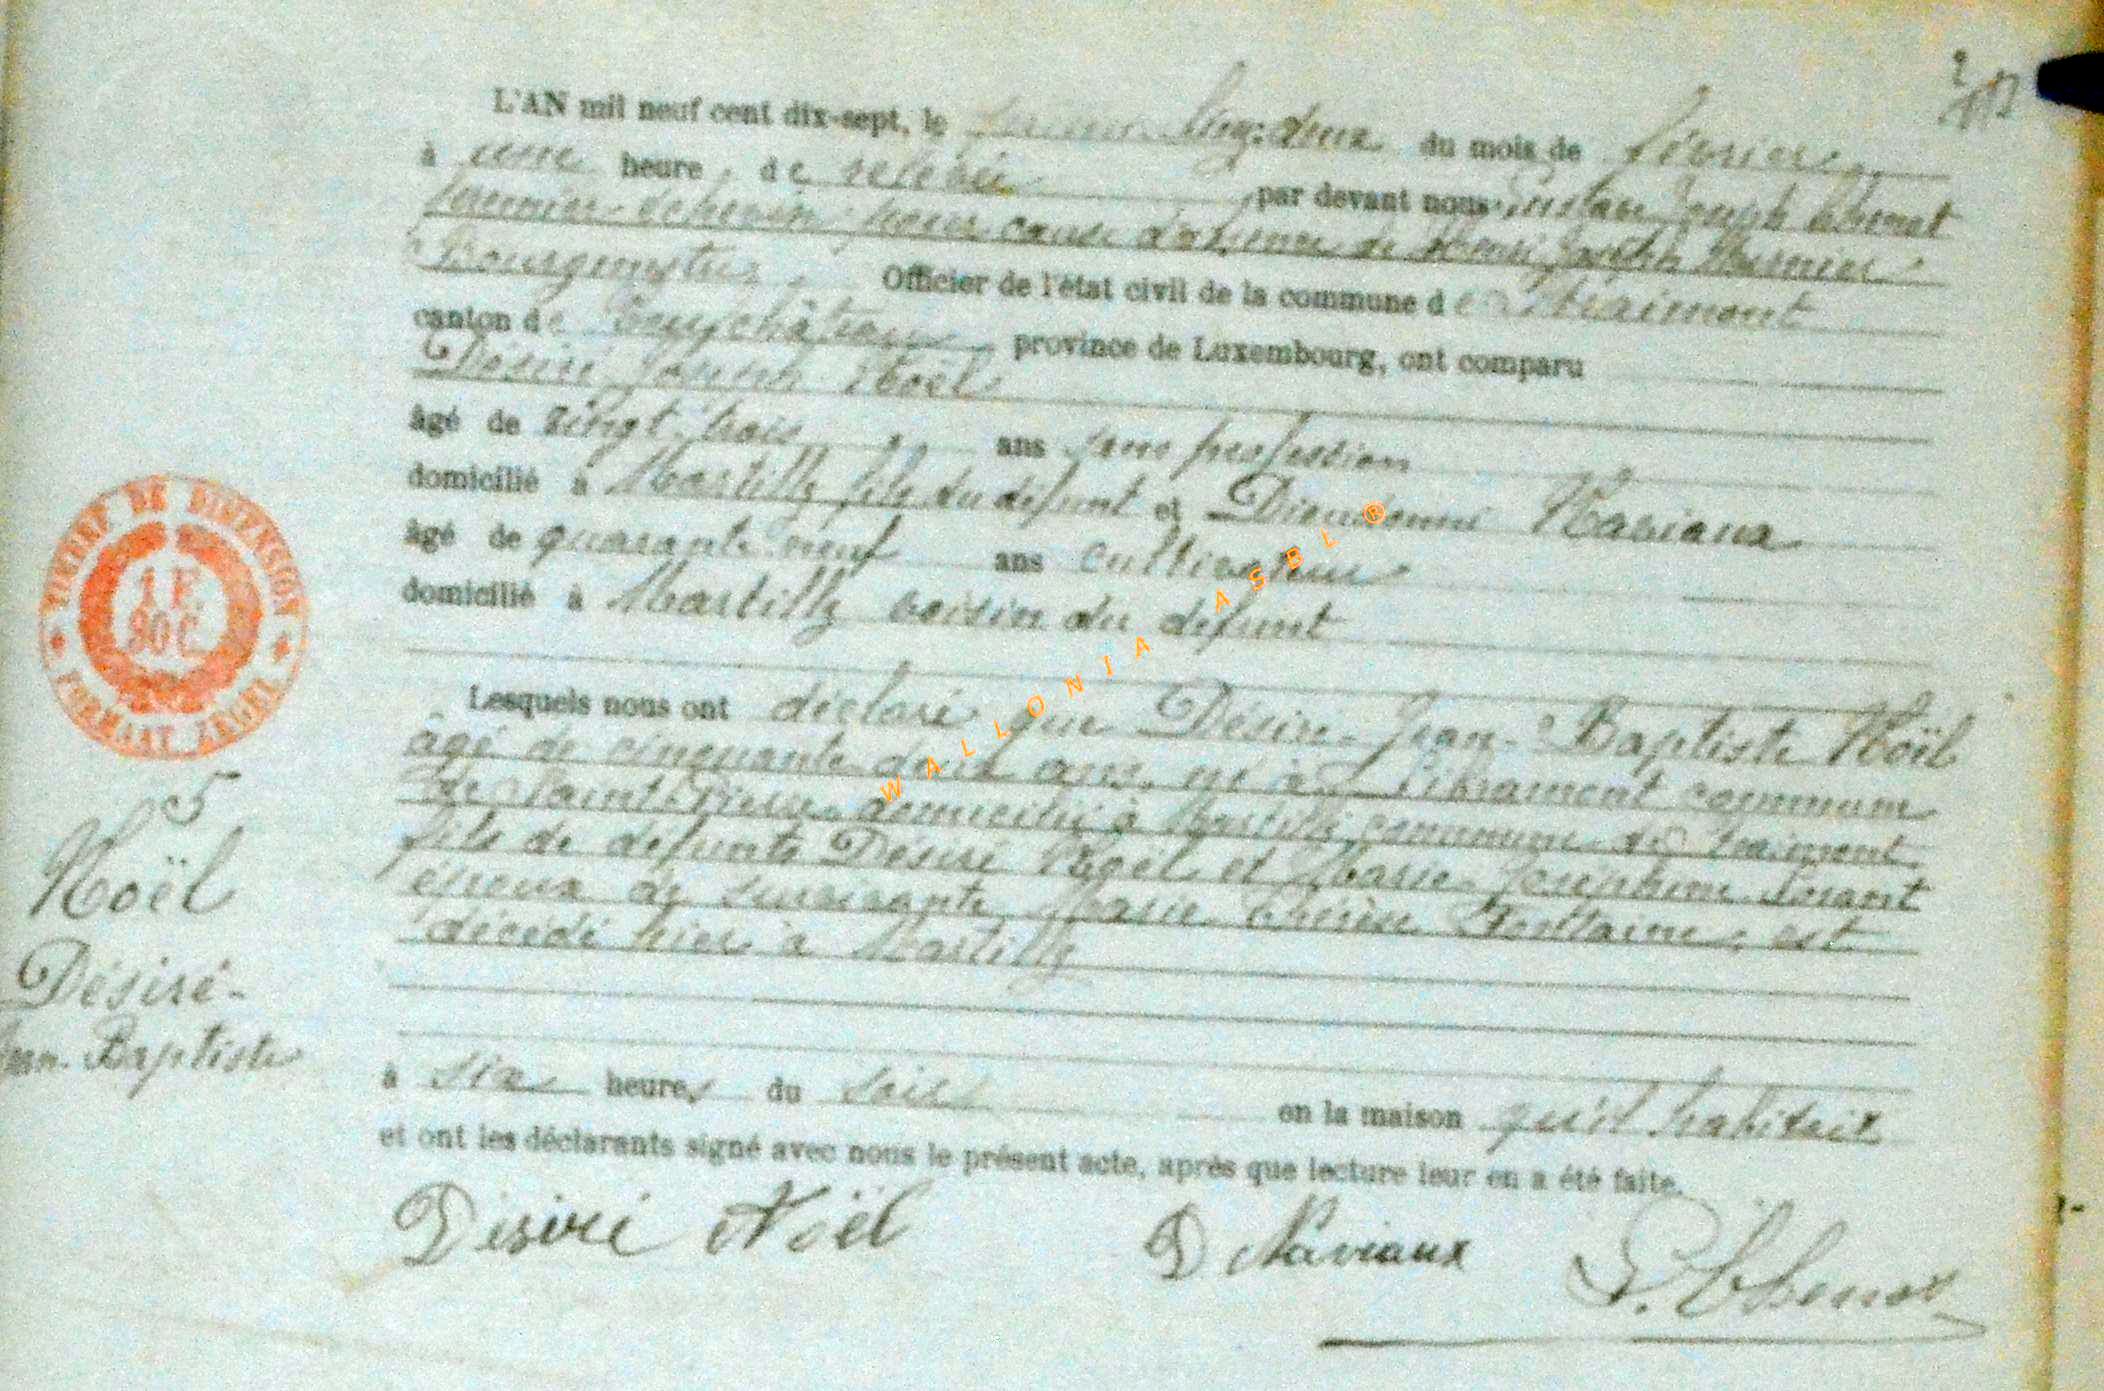 L'AN mil neuf cent dix-sept, le vingt-deux du mois de février
à une heure de relevée par devant nous Gustave Joseph Thomat
premier échevin pour cause d'absence de Henri Joseph
Bourgmestre, Officier de l'état civil de la commune de Straimont
canton de Neufchâteau province de Luxembourg, ont comparu
Désiré Joseph Noël
âgé de vingt trois ans sans profession
domicilié à Martilly fils du défunt et Dieudonné Naviaux
âgé de quarante neuf ans cultivateur
domicilié à Martilly voisin du défunt
TIMBRE DE DIMENSION
1 F.
90 C.
Lesquels nous ont déclaré que Désiré-Jean-Baptiste Noël
âgé de cinquante deux ans, né à Libramont commune
de Saint-Pierre, domicilié à Martilly commune de Straimont
fils de défunts Désiré Noël et Marie Joséphine
époux de survivante Marie Thérèse est
décédé hier à Martilly
5
Noël
Désiré-
Jean-Baptiste
à six heures du soir en la maison qu'il habitait
et ont les déclarants signé avec nous le présent acte, après que lecture leur en a été faite.
Désiré Noël D Naviaux
WALLONIA ASBL ®